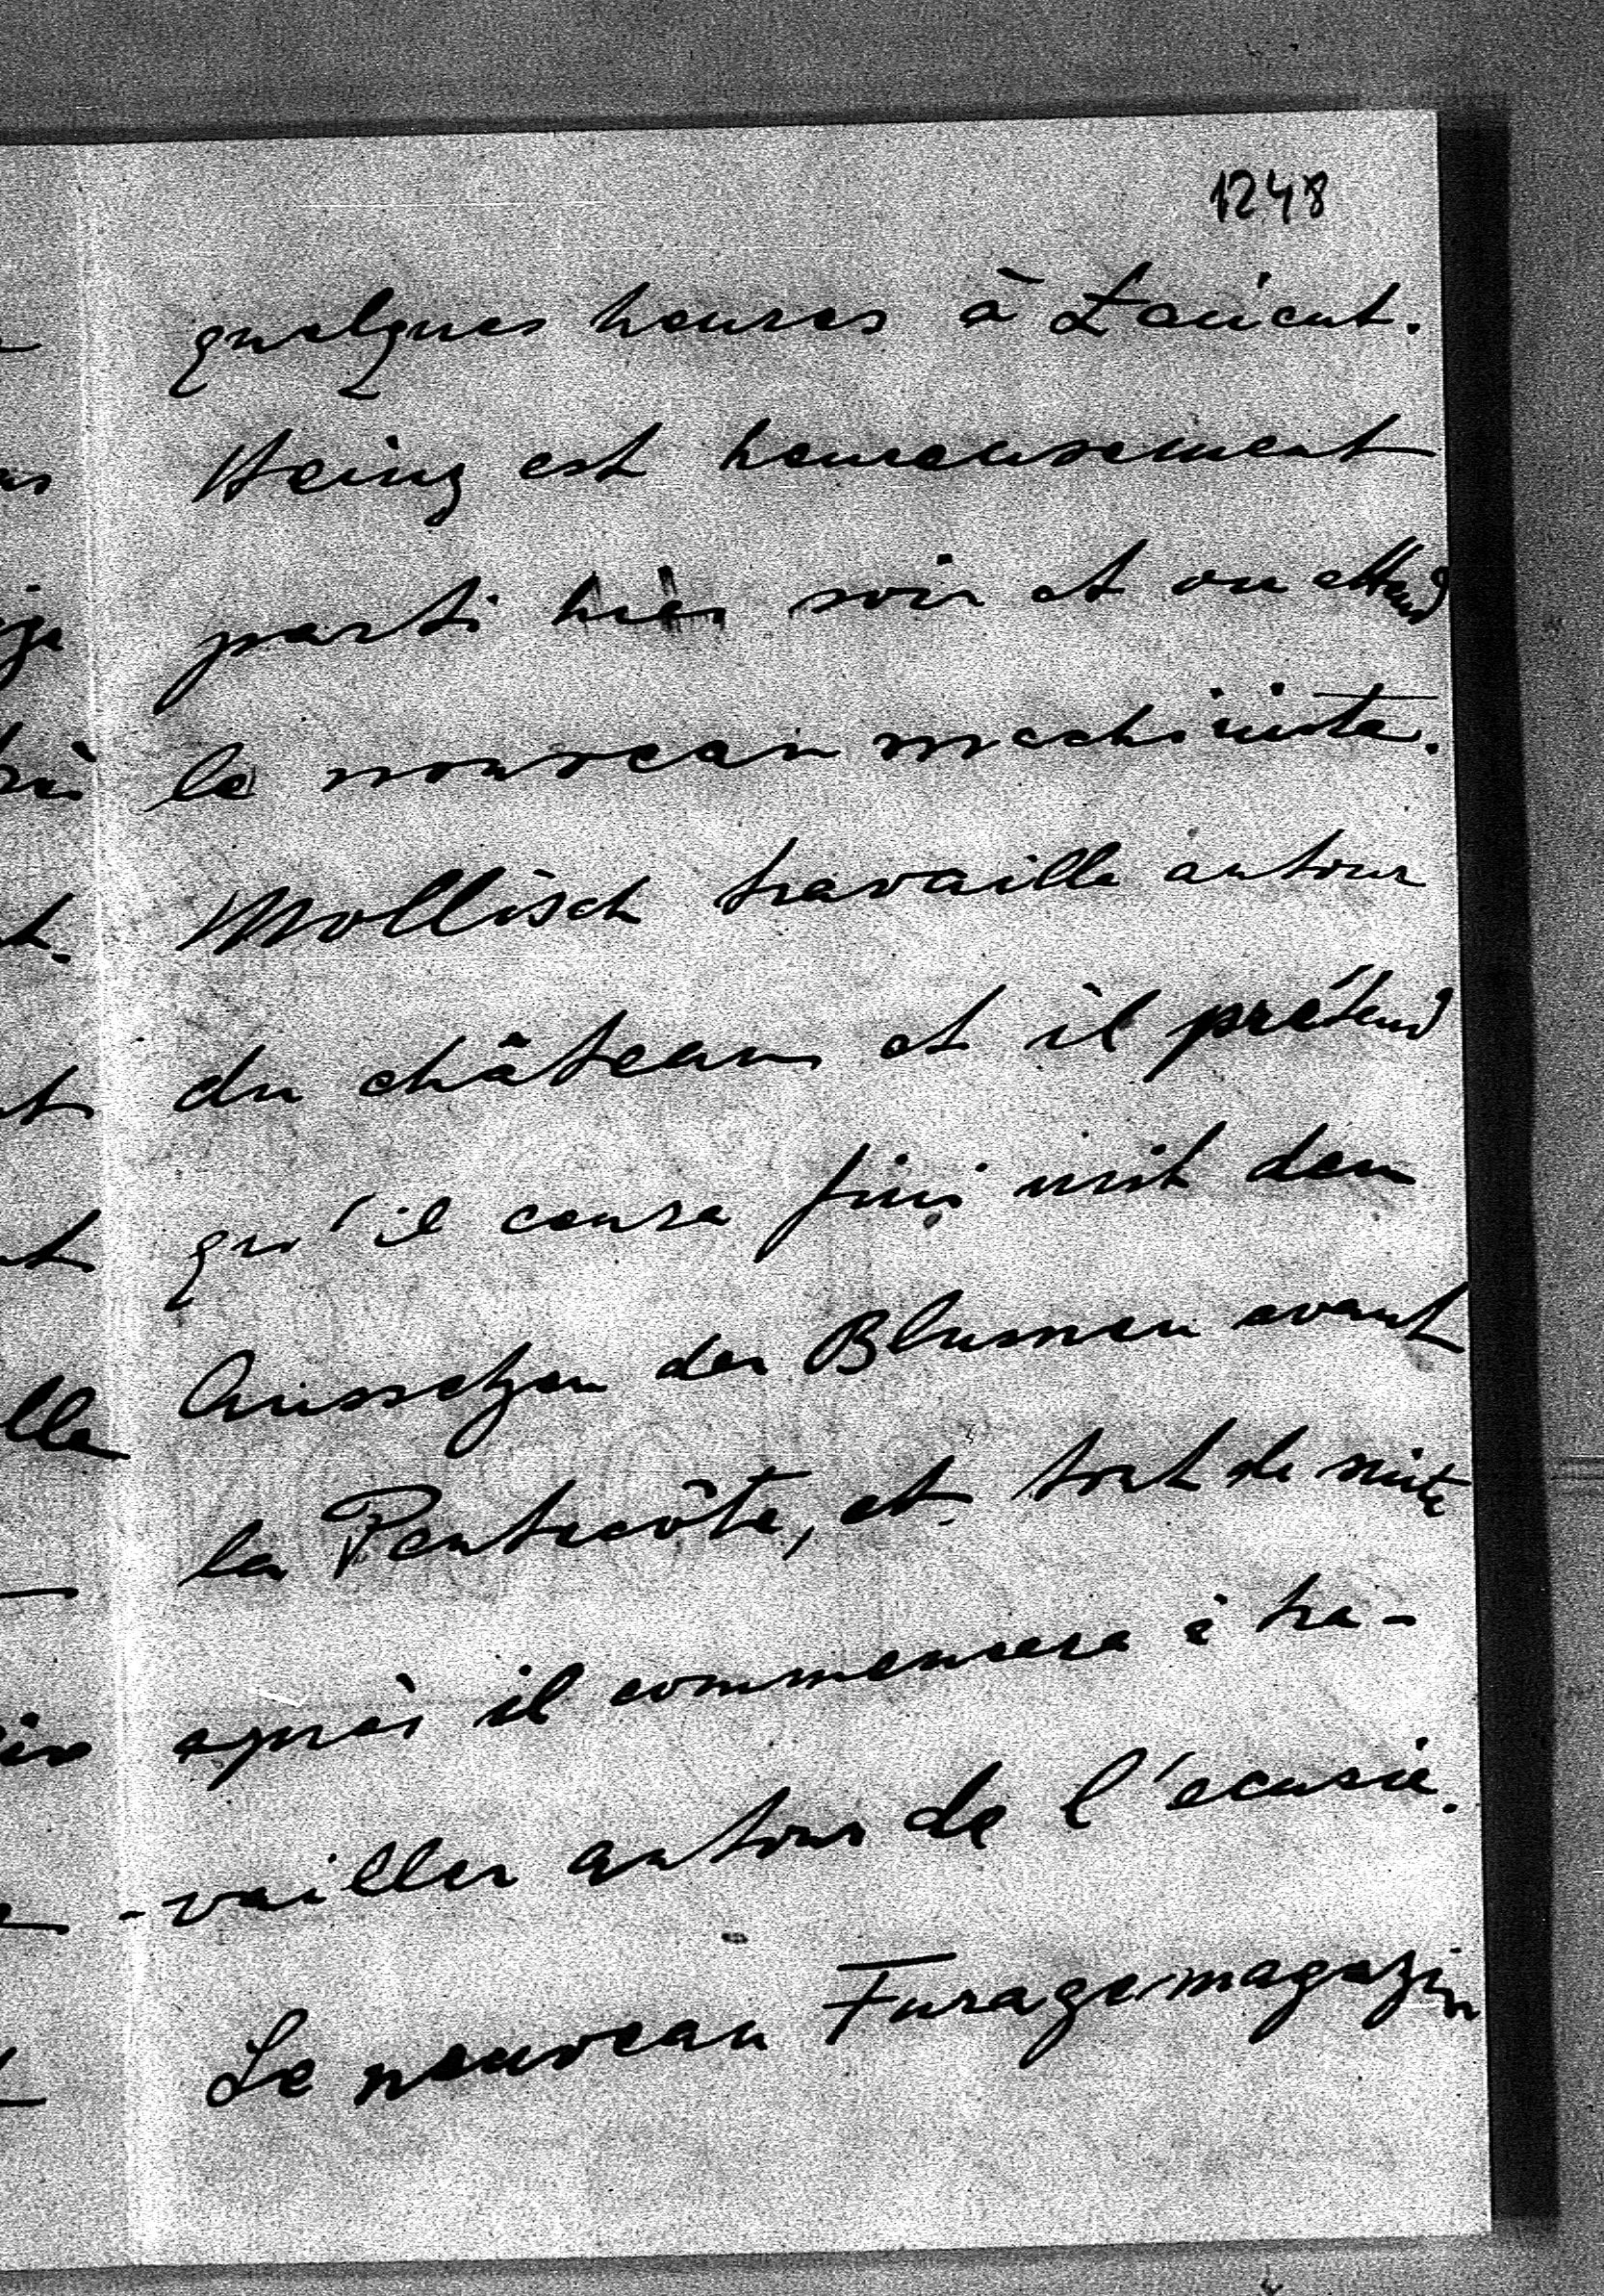 1248
quelques heures à Łańcut.
Heinz est heureusement
parti hier soir et on attend
le nouveau machiniste.
Mollisch travaille autour
du château et il prétend
qu'il aura fini mit dem
Aussetzen der Blumen avant
la Pentecôte, et tout de suite
après il commencera à tra-
-vailler autour de l'écurie.
Le nouveau Furagemagazin